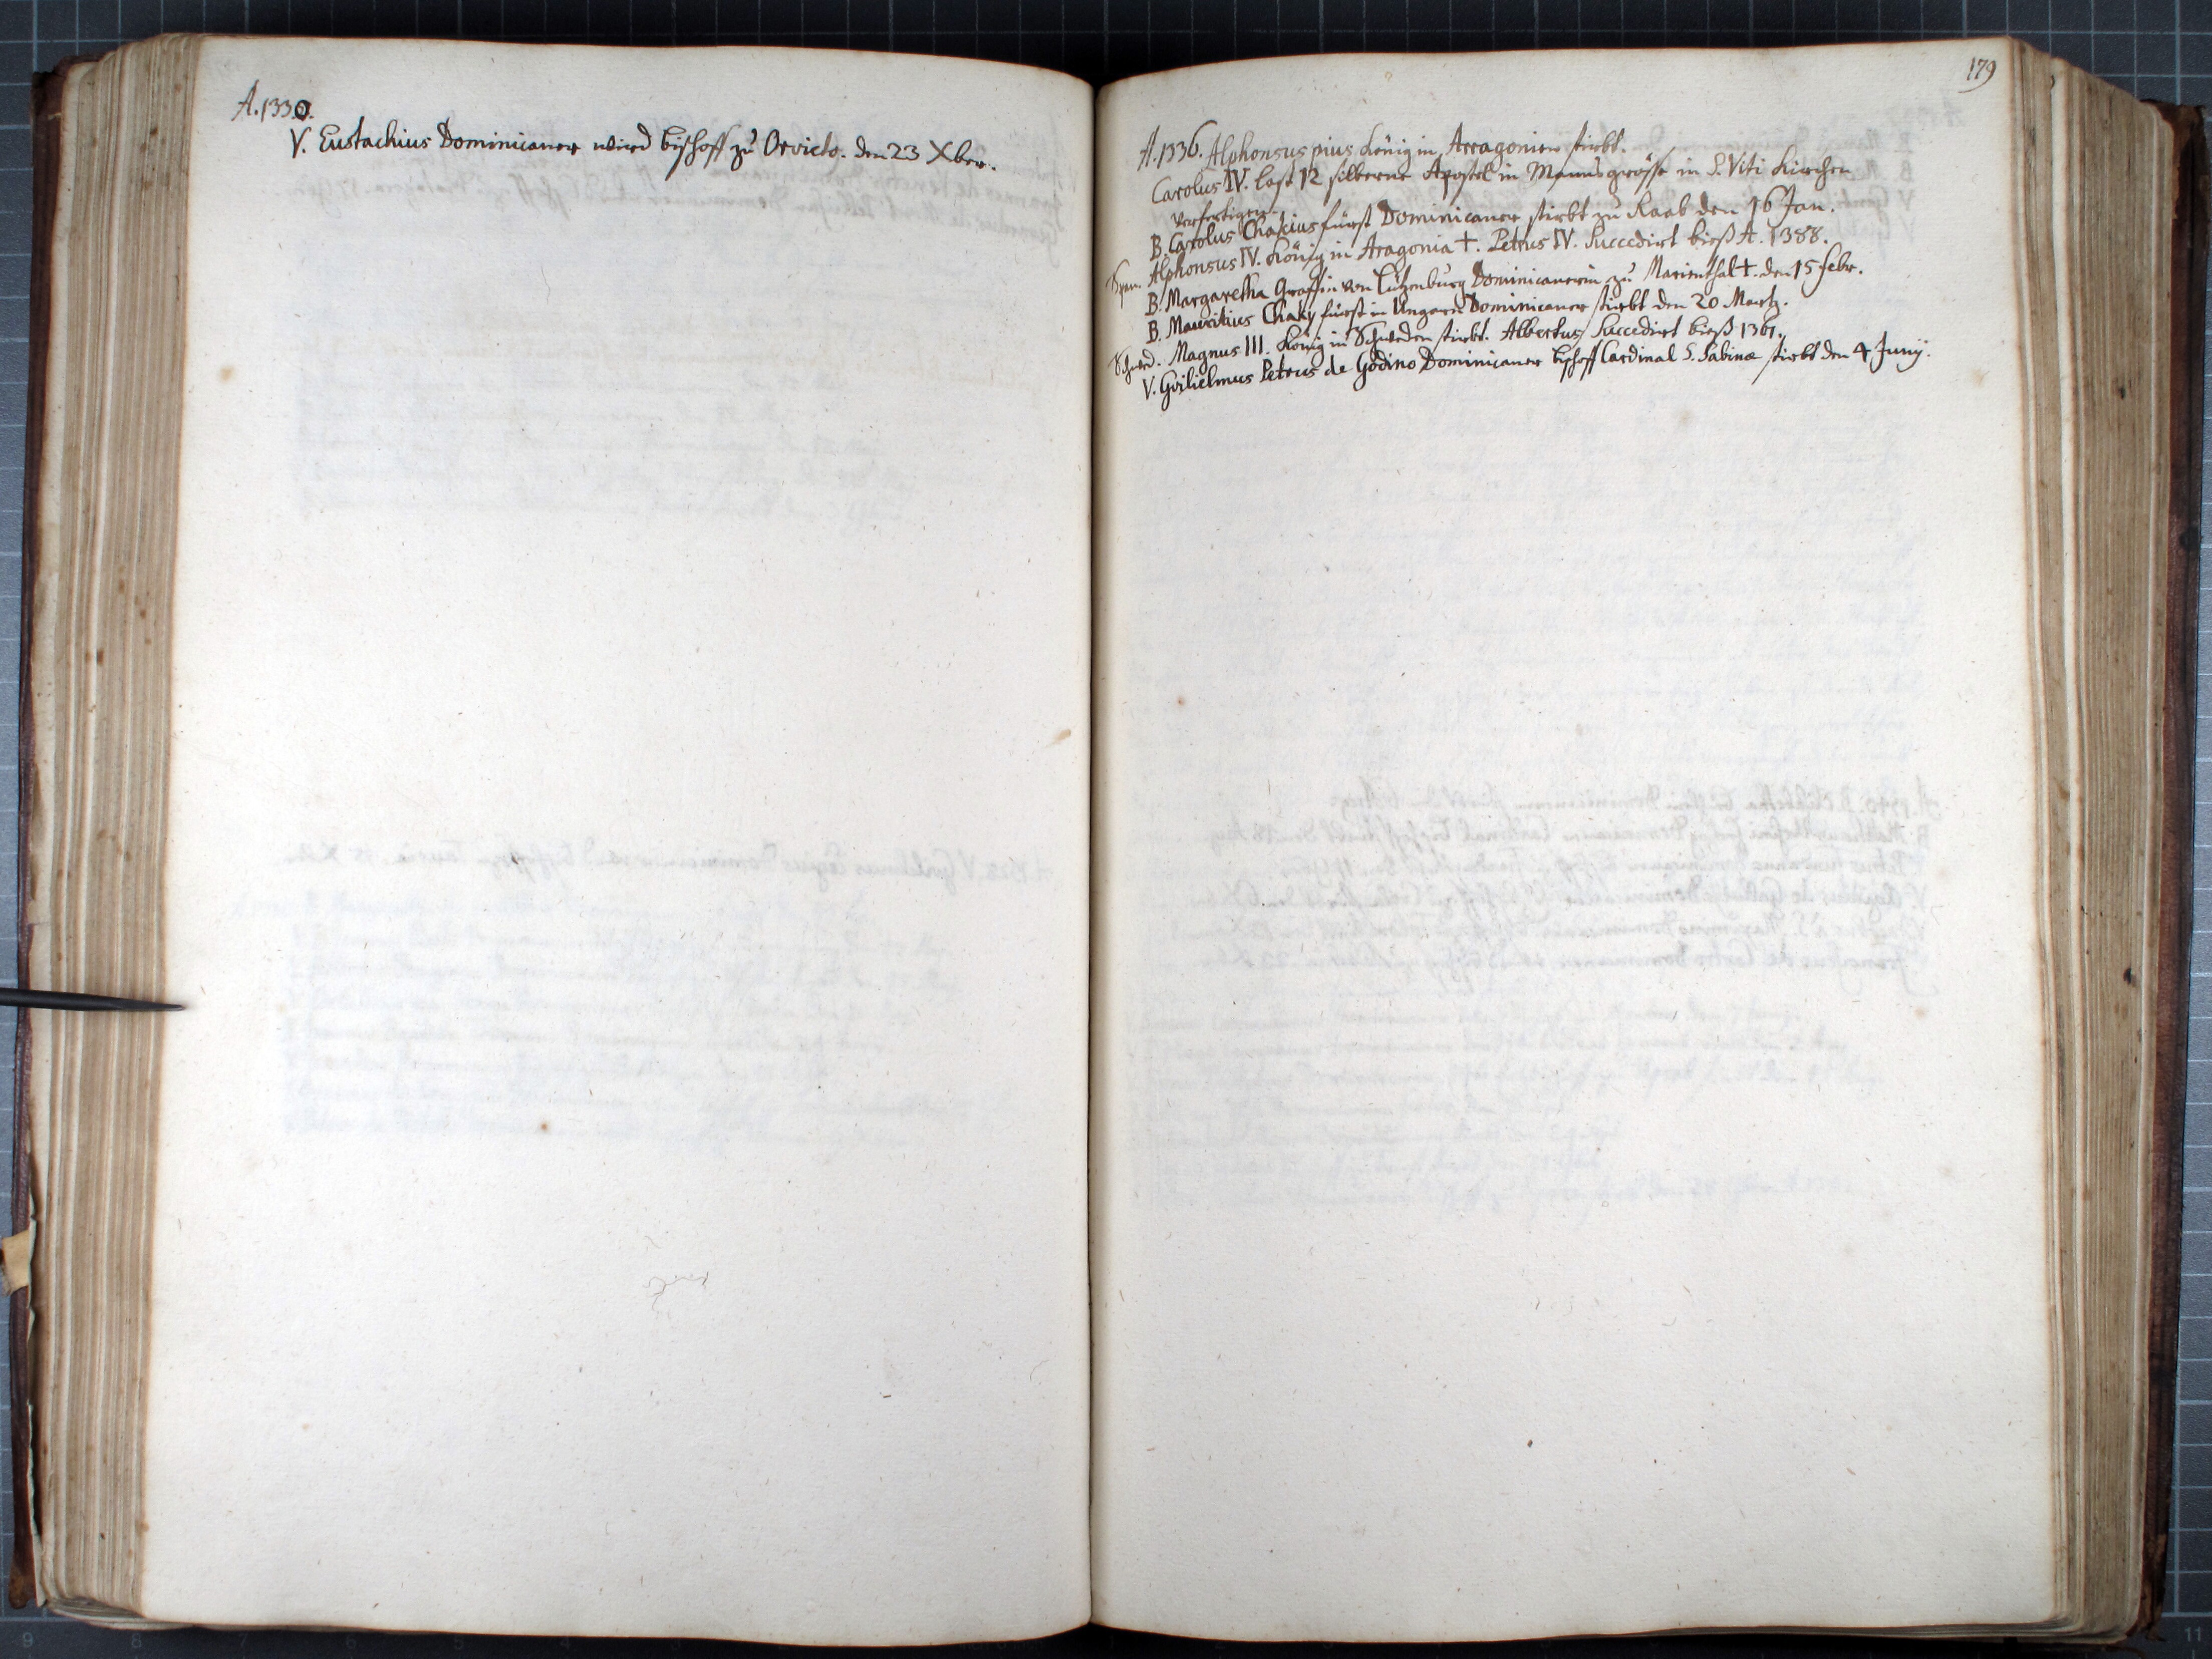 A. 1330.
V. Eustachius Dominicaner wird bischoff zu Orvieto. den 23 Xber.
179
A. 1336. Alphonsus pius König in Arragonien stirbt.
Carolus IV. last 12 silberne Apostel in Mannsgrösse in S. Viti Kirchen
verfertigen.
B. Carolus Chakius fürst Dominicaner stirbt zu Raab den 16 Jan.
Span. Alphonsus IV. König in Aragonia †. Petrus IV. Succedirt bieß A. 1388.
B. Margaretha Graffin von Lützenburg Dominicanerin zu Marienthal †. den 15 febr.
B. Mauritius Chaky fürst in Ungarn Dominicaner stirbt den 20 Martz.
Schwed. Magnus III. König in Schweden stirbt. Albertus Succedirt bieß 1361.
V. Gvilielmus Petrus de Godino Dominicaner bischoff Cardinal S. Sabinæ stirbt den 4 Junij.